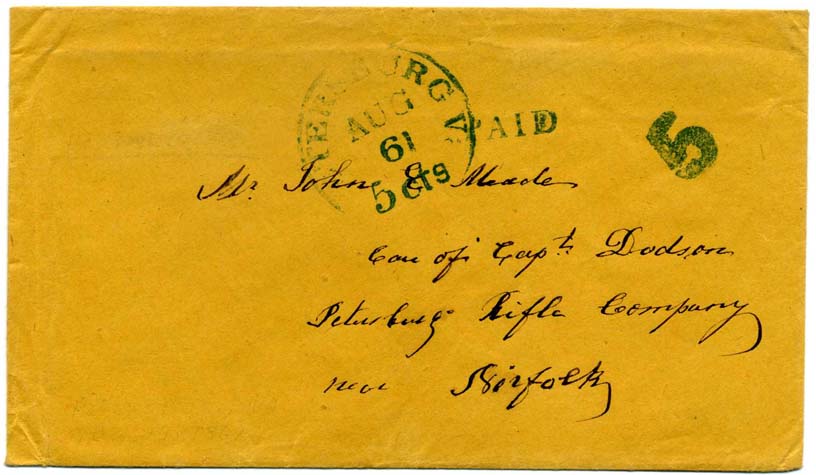 TERSBURG VA
AUG
61
5 cts
PAID
5
Mr. John E Meade
Care of Capt. Dodson
Petersburg Rifle Company
near Norfolk